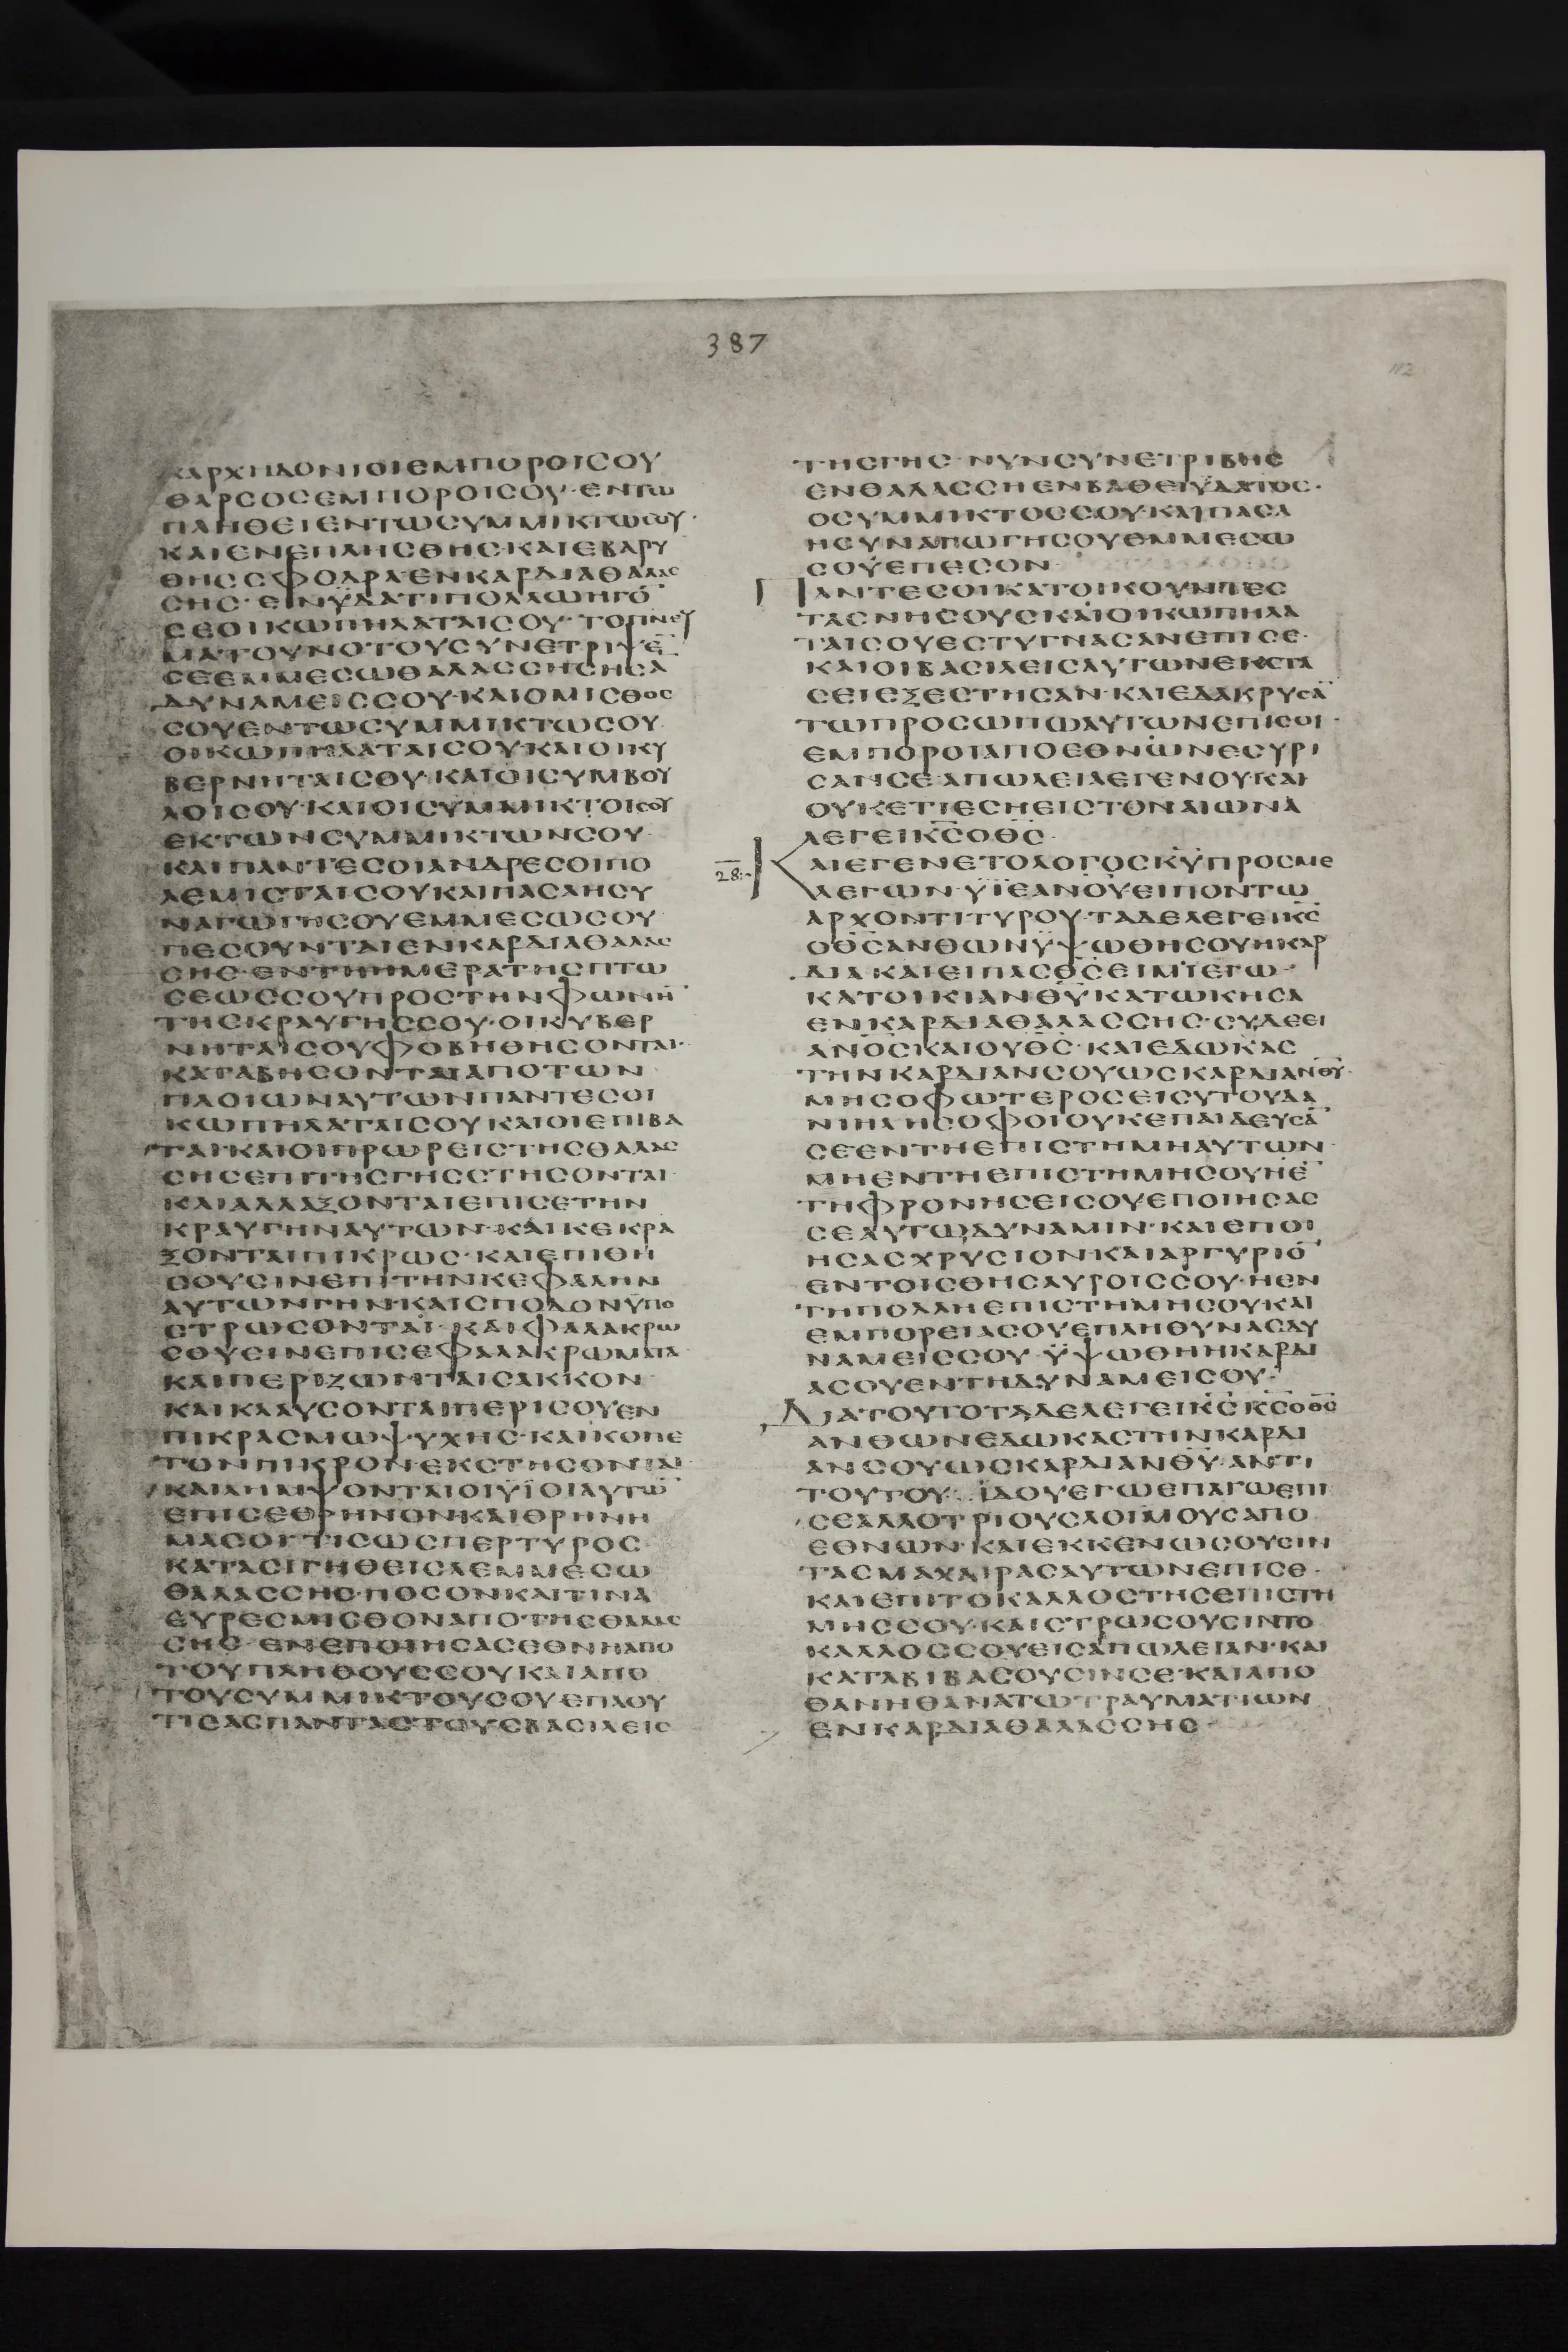 387
112
ΚΑΡΧΗΔΟΝΙΟΙΕΜΠΟΡΟΙϹΟΥ
ΘΑΡϹΟϹΕΜΠΟΡΟΙϹΟΥ·ΕΝΤΩ
ΠΛΗΘΕΙΕΝΤΩϹΥΜΜΙΚΤΩϹΟΥ·
ΚΑΙΕΝΕΠΛΗϹΘΗϹ·ΚΑΙΕΒΑΡΥ
ΘΗϹϹΦΟΔΡΑΕΝΚΑΡΔΙΑΘΑΛΑϹ
ϹΗϹ·ΕΝΫΔΑΤΙΠΟΛΛΩΗΓΟ̅
ϹΕΟΙΚΩΠΗΛΑΤΑΙϹΟΥ·ΤΟΠΝΕΥ
ΜΑΤΟΥΝΟΤΟΥϹΥΝΕΤΡΙΨΕ̅
ϹΕΕΜΜΕϹΩΘΑΛΑϹϹΗϹΗϹΑ
ΔΥΝΑΜΕΙϹϹΟΥ·ΚΑΙΟΜΙϹΘΟϹ
ϹΟΥΕΝΤΩϹΥΜΜΙΚΤΩϹΟΥ
ΟΙΚΩΠΗΛΑΤΑΙϹΟΥ·ΚΑΙΟΙΚΥ
ΒΕΡΝΗΤΑΙϹΟΥ·ΚΑΙΟΙϹΥΜΒΟΥ
ΛΟΙϹΟΥ·ΚΑΙΟΙϹΥΜΜΙΚΤΟΙϹΟΥ
ΕΚΤΩΝϹΥΜΜΙΚΤΩΝϹΟΥ
ΚΑΙΠΑΝΤΕϹΟΙΑΝΔΡΕϹΟΙΠΟ
ΛΕΜΙϹΤΑΙϹΟΥΚΑΙΠΑϹΑΗϹΥ
ΝΑΓΩΓΗϹΟΥΕΜΜΕϹΩϹΟΥ
ΠΕϹΟΥΝΤΑΙΕΝΚΑΡΔΙΑΘΑΛΑϹ
ϹΗϹ·ΕΝΤΗΗΜΕΡΑΤΗϹΠΤΩ
ϹΕΩϹϹΟΥΠΡΟϹΤΗΝΦΩΝΗ̅
ΤΗϹΚΡΑΥΓΗϹϹΟΥ·ΟΙΚΥΒΕΡ
ΝΗΤΑΙϹΟΥΦΟΒΗΘΗϹΟΝΤΑΙ·
ΚΑΤΑΒΗϹΟΝΤΑΙΑΠΟΤΩΝ
ΠΛΟΙΩΝΑΥΤΩΝΠΑΝΤΕϹΟΙ
ΚΩΠΗΛΑΤΑΙϹΟΥΚΑΙΟΙΕΠΙΒΑ
ΤΑΙΚΑΙΟΙΠΡΩΡΕΙϹΤΗϹΘΑΛΑϹ
ϹΗϹΕΠΙΤΗϹΓΗϹϹΤΗϹΟΝΤΑΙ
ΚΑΙΑΛΑΛΑΞΟΝΤΑΙΕΠΙϹΕΤΗΝ
ΚΡΑΥΓΗΝΑΥΤΩΝ·ΚΑΙΚΕΚΡΑ
ΞΟΝΤΑΙΠΙΚΡΩϹ·ΚΑΙΕΠΙΘΗ
ϹΟΥϹΙΝΕΠΙΤΗΝΚΕΦΑΛΗΝ
ΑΥΤΩΝΓΗΝ·ΚΑΙϹΠΟΔΟΝΫΠΟ
ϹΤΡΩϹΟΝΤΑΙ·ΚΑΙΦΑΛΑΚΡΩ
ϹΟΥϹΙΝΕΠΙϹΕΦΑΛΑΚΡΩΜΑΤΑ
ΚΑΙΠΕΡΙΖΩΝΤΑΙϹΑΚΚΟΝ
ΚΑΙΚΛΑΥϹΟΝΤΑΙΠΕΡΙϹΟΥΕΝ
ΠΙΚΡΑϹΜΩΨΥΧΗϹ·ΚΑΙΚΟΠΕ
ΤΟΝΠΙΚΡΟΝ·ΕΚϹΤΗϹΟΝΤΑΙ
ΚΑΙΛΗΜΨΟΝΤΑΙΟΙΫΪΟΙΑΥΤΩ̅
ΕΠΙϹΕΘΡΗΝΟΝ·ΚΑΙΘΡΗΝΗ
ΜΑϹΟΙ·ΤΙϹΩϹΠΕΡΤΥΡΟϹ
ΚΑΤΑϹΙΓΗΘΕΙϹΑΕΜΜΕϹΩ
ΘΑΛΑϹϹΗϹ·ΠΟϹΟΝΚΑΙΤΙΝΑ
ΕΥΡΕϹΜΙϹΘΟΝΑΠΟΤΗϹΘΑΛΑϹ
ϹΗϹ·ΕΝΕΠΟΙΗϹΑϹΕΘΝΗΑΠΟ
ΤΟΥΠΛΗΘΟΥϹϹΟΥΚΑΙΑΠΟ
ΤΟΥϹΥΜΜΙΚΤΟΥϹΟΥ·ΕΠΛΟΥ
ΤΙϹΑϹΠΑΝΤΑϹΤΟΥϹΒΑϹΙΛΕΙϹ
ΤΗϹΓΗϹ·ΝΥΝϹΥΝΕΤΡΙΒΗϹ
ΕΝΘΑΛΑϹϹΗΕΝΒΑΘΕΙΫΔΑΤΟϹ·
ΟϹΥΜΜΙΚΤΟϹϹΟΥ·ΚΑΙΠΑϹΑ
ΗϹΥΝΑΓΩΓΗϹΟΥΕΜΜΕϹΩ
ϹΟΥΕΠΕϹΟΝ
ΠΑΝΤΕϹΟΙΚΑΤΟΙΚΟΥΝΤΕϹ
ΤΑϹΝΗϹΟΥϹΚΑΙΟΙΚΩΠΗΛΑ
ΤΑΙϹΟΥΕϹΤΥΓΝΑϹΑΝΕΠΙϹΕ·
ΚΑΙΟΙΒΑϹΙΛΕΙϹΑΥΤΩΝΕΚϹΤΑ
ϹΕΙΕΞΕϹΤΗϹΑΝ·ΚΑΙΕΔΑΚΡΥϹΑ̅
ΤΩΠΡΟϹΩΠΩΑΥΤΩΝΕΠΙϹΟΙ·
ΕΜΠΟΡΟΙΑΠΟΕΘΝΩΝΕϹΥΡΙ
ϹΑΝϹΕ·ΑΠΩΛΕΙΑΕΓΕΝΟΥ·ΚΑΙ
ΟΥΚΕΤΙΕϹΗΕΙϹΤΟΝΑΙΩΝΑ
ΛΕΓΕΙΚ̅ϹΟΘ̅Ϲ
28 ΚΑΙΕΓΕΝΕΤΟΛΟΓΟϹΚ̅Υ̅ΠΡΟϹΜΕ
ΛΕΓΩΝ·ΫΪΕΑΝΟΥΕΙΠΟΝΤΩ
ΑΡΧΟΝΤΙΤΥΡΟΥ·ΤΑΔΕΛΕΓΕΙΚ̅Ϲ̅
ΟΘ̅Ϲ̅ΑΝΘΩΝΫΨΩΘΗϹΟΥΗΚΑΡ
ΔΙΑ·ΚΑΙΕΙΠΑϹΘ̅Ϲ̅ΕΙΜΙΕΓΩ
ΚΑΤΟΙΚΙΑΝΘ̅Υ̅ΚΑΤΩΚΗϹΑ
ΕΝΚΑΡΔΙΑΘΑΛΑϹϹΗϹ·ϹΥΔΕΕΙ
ΑΝΟϹΚΑΙΟΥΘ̅Ϲ̅·ΚΑΙΕΔΩΚΑϹ
ΤΗΝΚΑΡΔΙΑΝϹΟΥΩϹΚΑΡΔΙΑΝΘ̅Υ̅·
ΜΗϹΟΦΩΤΕΡΟϹΕΙϹΥΤΟΥΔΑ
ΝΙΗΛΗϹΟΦΟΙΟΥΚΕΠΑΙΔΕΥϹΑ̅
ϹΕΕΝΤΗΕΠΙϹΤΗΜΗΑΥΤΩΝ
ΜΗΕΝΤΗΕΠΙϹΤΗΜΗϹΟΥΗΕ̅
ΤΗΦΡΟΝΗϹΕΙϹΟΥΕΠΟΙΗϹΑϹ
ϹΕΑΥΤΩΔΥΝΑΜΙΝ·ΚΑΙΕΠΟΙ
ΗϹΑϹΧΡΥϹΙΟΝΚΑΙΑΡΓΥΡΙΟ̅
ΕΝΤΟΙϹΘΗϹΑΥΡΟΙϹϹΟΥ·ΗΕΝ
ΤΗΠΟΛΛΗΕΠΙϹΤΗΜΗϹΟΥ·ΚΑΙ
ΕΜΠΟΡΕΙΑϹΟΥΕΠΛΗΘΥΝΑϹΔΥ
ΝΑΜΕΙϹϹΟΥ·ΫΨΩΘΗΗΚΑΡΔΙ
ΑϹΟΥΕΝΤΗΔΥΝΑΜΕΙϹΟΥ·
ΔΙΑΤΟΥΤΟΤΑΔΕΛΕΓΕΙΚ̅Ϲ̅Κ̅Ϲ̅ΟΘ̅Ϲ̅
ΑΝΘΩΝΕΔΩΚΑϹΤΗΝΚΑΡΔΙ
ΑΝϹΟΥΩϹΚΑΡΔΙΑΝΘ̅Υ̅·ΑΝΤΙ
ΤΟΥΤΟΥ·ΪΔΟΥΕΓΩΕΠΑΓΩΕΠΙ
ϹΕΑΛΛΟΤΡΙΟΥϹΛΟΙΜΟΥϹΑΠΟ
ΕΘΝΩΝ·ΚΑΙΕΚΚΕΝΩϹΟΥϹΙΝ
ΤΑϹΜΑΧΑΙΡΑϹΑΥΤΩΝΕΠΙϹΕ·
ΚΑΙΕΠΙΤΟΚΑΛΛΟϹΤΗϹΕΠΙϹΤΗ
ΜΗϹϹΟΥ·ΚΑΙϹΤΡΩϹΟΥϹΙΝΤΟ
ΚΑΛΛΟϹϹΟΥΕΙϹΑΠΩΛΕΙΑΝ·ΚΑΙ
ΚΑΤΑΒΙΒΑϹΟΥϹΙΝϹΕ·ΚΑΙΑΠΟ
ΘΑΝΗΘΑΝΑΤΩΤΡΑΥΜΑΤΙΩΝ
ΕΝΚΑΡΔΙΑΘΑΛΑϹϹΗϹ